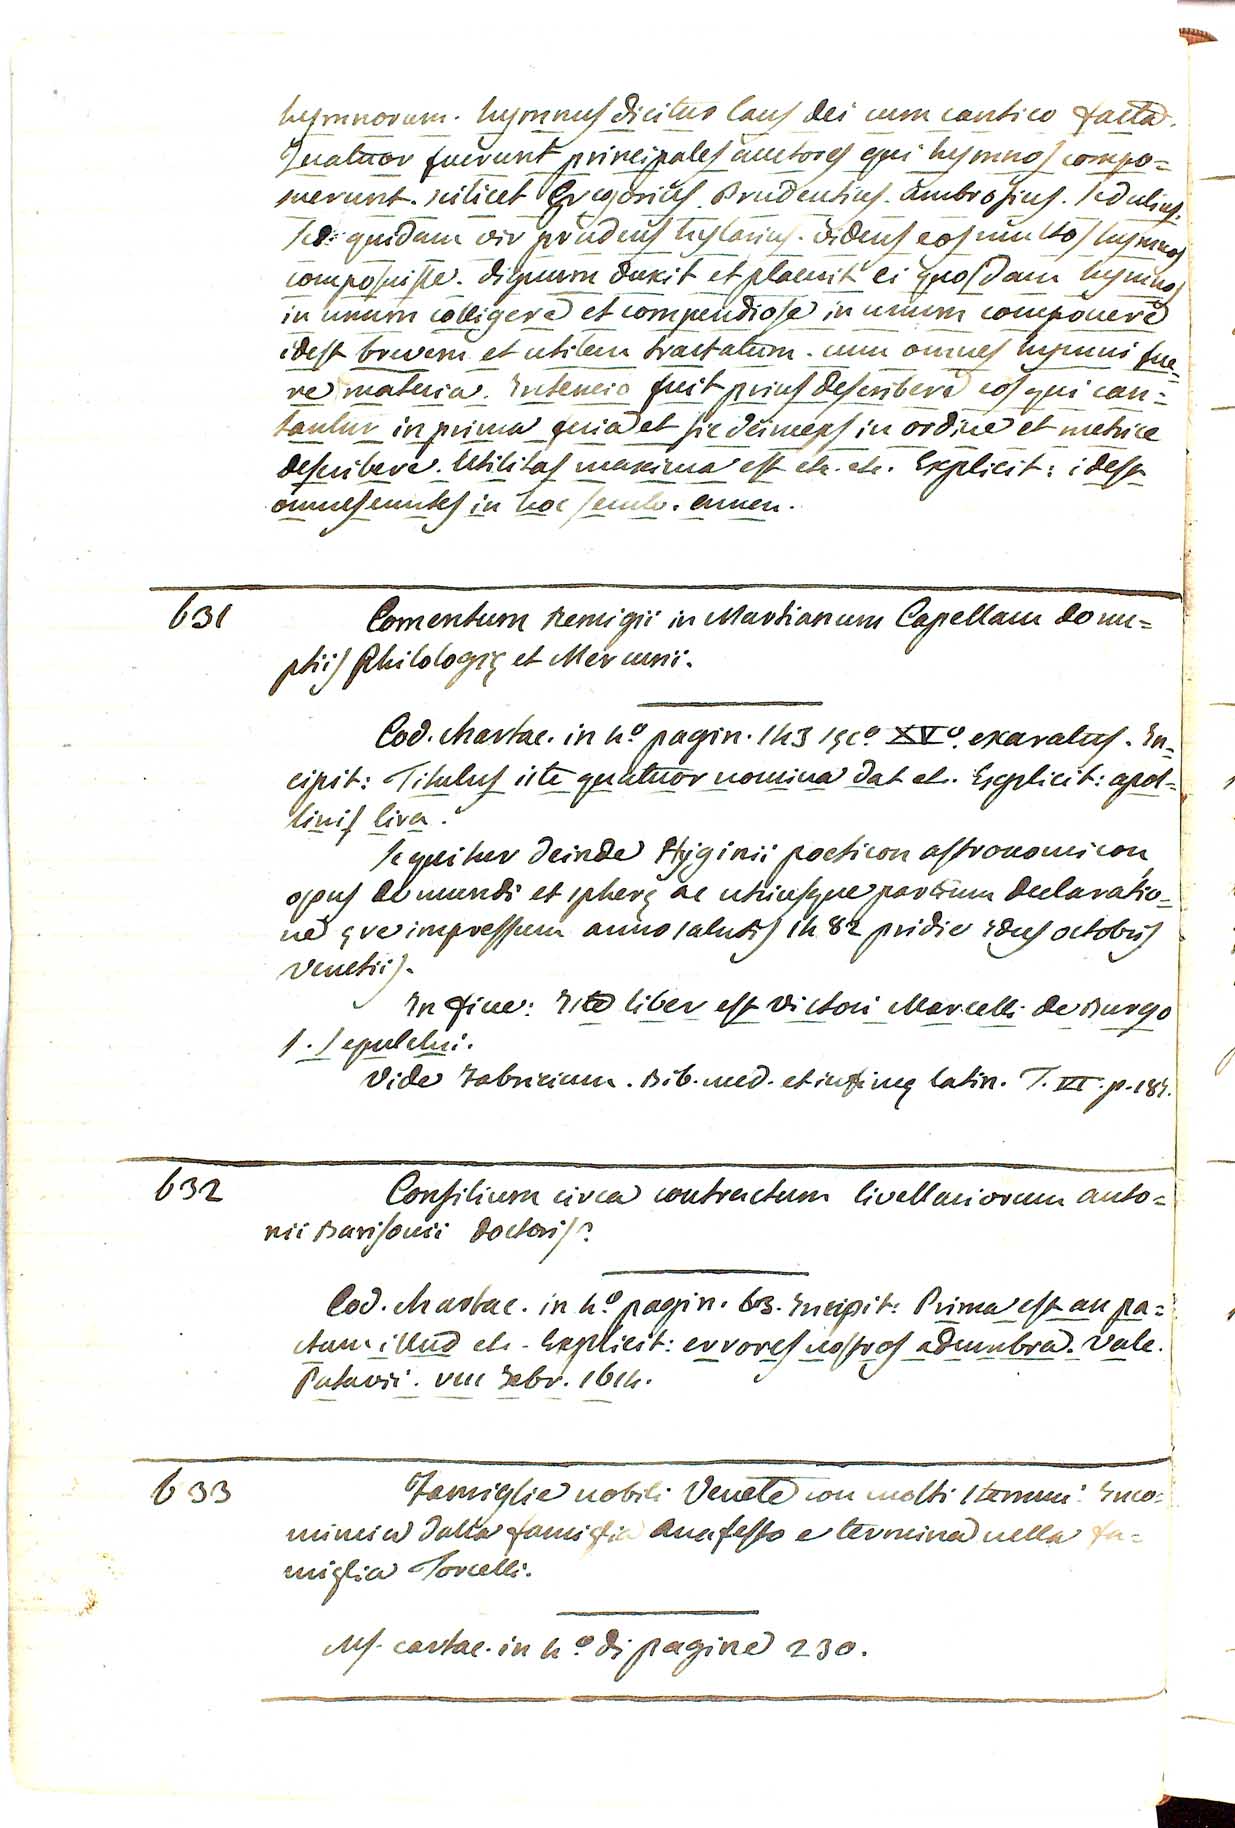 hymnorum. hymnus dicitur laus dei cum cantico facta.
Quatuor fuerunt principales auctores qui hymnos compo=
suerunt. scilicet Gregorius. Prudentius. Ambrosius. Sedulius.
Sed quidam vir prudens hylarius. videns eos multos hymnos
composuisse. dignum duxit et placuit ei quosdam hymnos
in unum colligere et compendiose in unum componere
idest brevem et utilem tractatum. cum omnes hymni fue=
re materia. Intencio fuit prius describere eos qui can=
tantur in prima feria et sic deinceps in ordine et metrice
describere. Utilitas maxima est etc. etc. Explicit: idest
omnes euntes in hoc seculo. amen.
631 Comentum Remigii in Martianum Capellam de nu=
ptiis Philologię et Mercurii.
Cod. chartac. in 4.º pagin. 143 sęc.º XV.º exaratus. In=
cipit: Titulus iste quatuor nomina dat etc. Explicit: apol=
linis lira.
Sequitur deinde Hyginii poeticon astronomicon
opus de mundi et spherę ac utriusque partium declaratio=
ne ęre impressum anno salutis 1482 pridie Idus octobris
Venetiis.
In fine: Iste liber est Victori Marcelli de Burgo
S. Sepulchri.
Vide Fabricium. Bib. med. et infimę latin. T. VI. p.
632 Consilium circa contractum livellariorum Anto=
nii Barisonii doctoris?
Cod. chartac. in 4.º pagin. 63. Incipit: Prima est an pa=
ctum illud etc. Explicit: errores nostros adumbra. Vale.
Patavii. VIII Febr. 1614.
633 Famiglie nobili Venete con molti stemmi. Inco=
mincia dalla famiglia Anafesto e termina nella fa=
miglia Torcelli.
Ms. cartac. in 4.º di pagine 230.